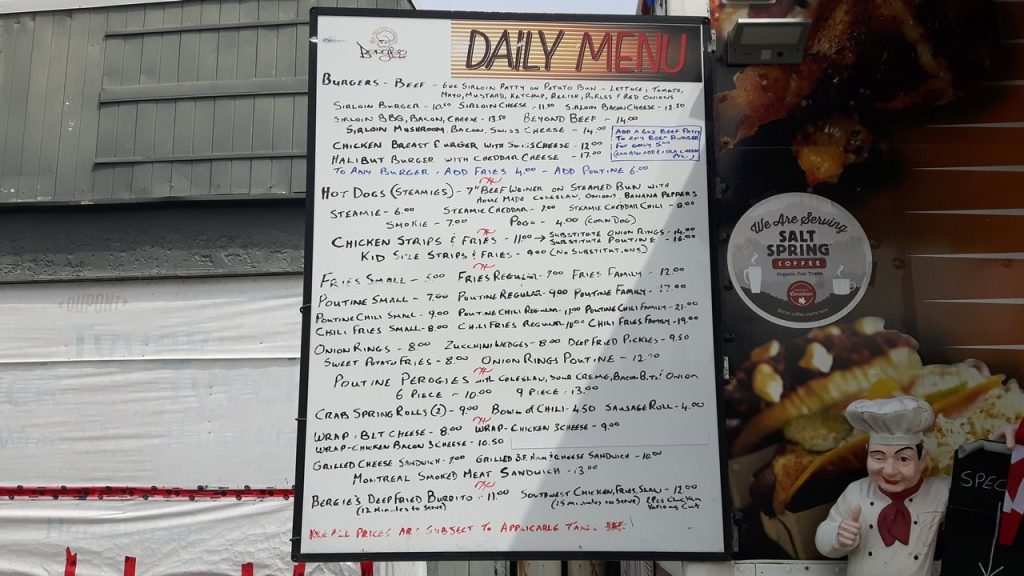 Bergie's
DAILY MENU
BURGERS - BEEF - 6OZ SIRLOIN PATTY ON POTATO BUN - LETTUCE, TOMATO,
MAYO, MUSTARD, KETCHUP, RELISH, PICKLES & RED ONIONS
SIRLOIN BURGER - 10.50 SIRLOIN CHEESE - 11.50 SIRLOIN BACON CHEESE - 12.50
SIRLOIN BBQ, BACON, CHEESE - 13.50 BEYOND BEEF - 14.00
SIRLOIN MUSHROOM, BACON, SWISS CHEESE - 14.00
CHICKEN BREAST BURGER WITH SWISS CHEESE - 12.00
HALIBUT BURGER WITH CHEDDAR CHEESE - 17.00
ADD A 6OZ BEEF PATTY
TO ANY BEEF BURGER
FOR ONLY 5.00
(CAN ALSO ADD EXTRA CHEESE
ETC.)
TO ANY BURGER - ADD FRIES 4.00 - ADD POUTINE 6.00
HOT DOGS (STEAMIES) - 7" BEEF WEINER ON STEAMED BUN WITH
HOME MADE COLESLAW, ONIONS, BANANA PEPPERS
STEAMIE - 6.00 STEAMIE CHEDDAR - 7.00 STEAMIE CHEDDAR CHILI - 8.00
SMOKIE - 7.00 POGO - 4.00 (CORN DOG)
CHICKEN STRIPS & FRIES - 11.00 → SUBSTITUTE ONION RINGS - 14.00
SUBSTITUTE POUTINE - 16.00
KID SIZE STRIPS & FRIES - 9.00 (NO SUBSTITUTIONS)
FRIES SMALL - 5.00 FRIES REGULAR - 7.00 FRIES FAMILY - 12.00
POUTINE SMALL - 7.00 POUTINE REGULAR - 9.00 POUTINE FAMILY - 17.00
POUTINE CHILI SMALL - 9.00 POUTINE CHILI REGULAR - 11.00 POUTINE CHILI FAMILY - 21.00
CHILI FRIES SMALL - 8.00 CHILI FRIES REGULAR - 10.00 CHILI FRIES FAMILY - 19.00
ONION RINGS - 8.00 ZUCCHINI WEDGES - 8.00 DEEP FRIED PICKLES - 9.50
SWEET POTATO FRIES - 8.00 ONION RINGS POUTINE - 12.00
POUTINE PEROGIES WITH COLESLAW, SOUR CREME, BACON BITS & ONION
6 PIECE - 10.00 9 PIECE - 13.00
CRAB SPRING ROLLS (2) - 9.00 BOWL OF CHILI - 4.50 SAUSAGE ROLL - 4.00
WRAP - BLT CHEESE - 8.00 WRAP - CHICKEN 3 CHEESE - 9.00
WRAP - CHICKEN BACON 3 CHEESE - 10.50
GRILLED CHEESE SANDWICH - 7.00 GRILLED B.F. HAM & CHEESE SANDWICH - 10.00
MONTREAL SMOKED MEAT SANDWICH - 13.00
BERGIE'S DEEP FRIED BURRITO - 11.00 SOUTHWEST CHICKEN, FRIES, SLAW - 12.00
(12 MINUTES TO SERVE) (15 MINUTES TO SERVE) 2 PCS CHICKEN
ALL PRICES ARE SUBJECT TO APPLICABLE TAXES
We Are Serving
SALT
SPRING
COFFEE
Organic. Fair Trade.
Canadian
DUPONT
SPEC